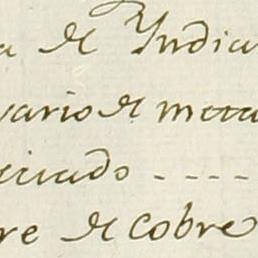 a de India
vario de meta
ciado ----
re de cobre